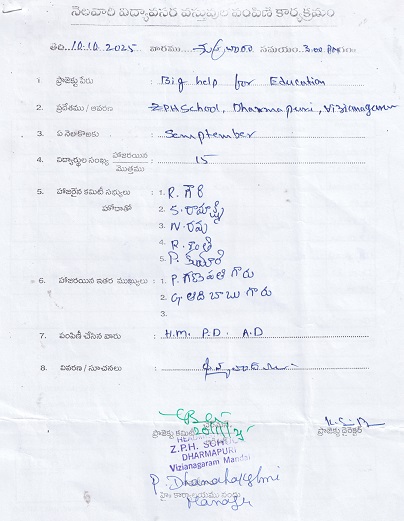 నెలవారి విద్యావసర వస్తువుల పంపిణీ కార్యక్రమం
తేది..10.10.2025 వారము శుక్రవారం సమయం..3.00 PM
1. ప్రాజెక్టు పేరు : Big help for Education
2. ప్రదేశము / ఆవరణ : ZPHSchool, Dharmapuri, Vizianagaram
3. ఏ నెలకొఱకు : Semptember
4. విద్యార్థుల సంఖ్య హాజరయిన : 15
మొత్తము
5. హాజరైన కమిటీ సభ్యులు : 1. R. గౌరి
హోదాతో 2. S. రామలక్ష్మి
3. N. రమ
4. R. కాంతి
5. P. కుమారి
6. హాజరయిన ఇతర ముఖ్యులు : 1. P. గణపతి గారు
2. G. ఆది బాబు గారు
3.
7. పంపిణీ చేసిన వారు : H.M. P.D. A.D
8. వివరణ / సూచనలు :
ప్రాజెక్టు కమిటీ ప్రాజెక్టు డైరెక్టర్
Z.P.H. SCHOOL
DHARMAPURI
Vizianagaram Mandal
P. Dhanalakshmi
Manager